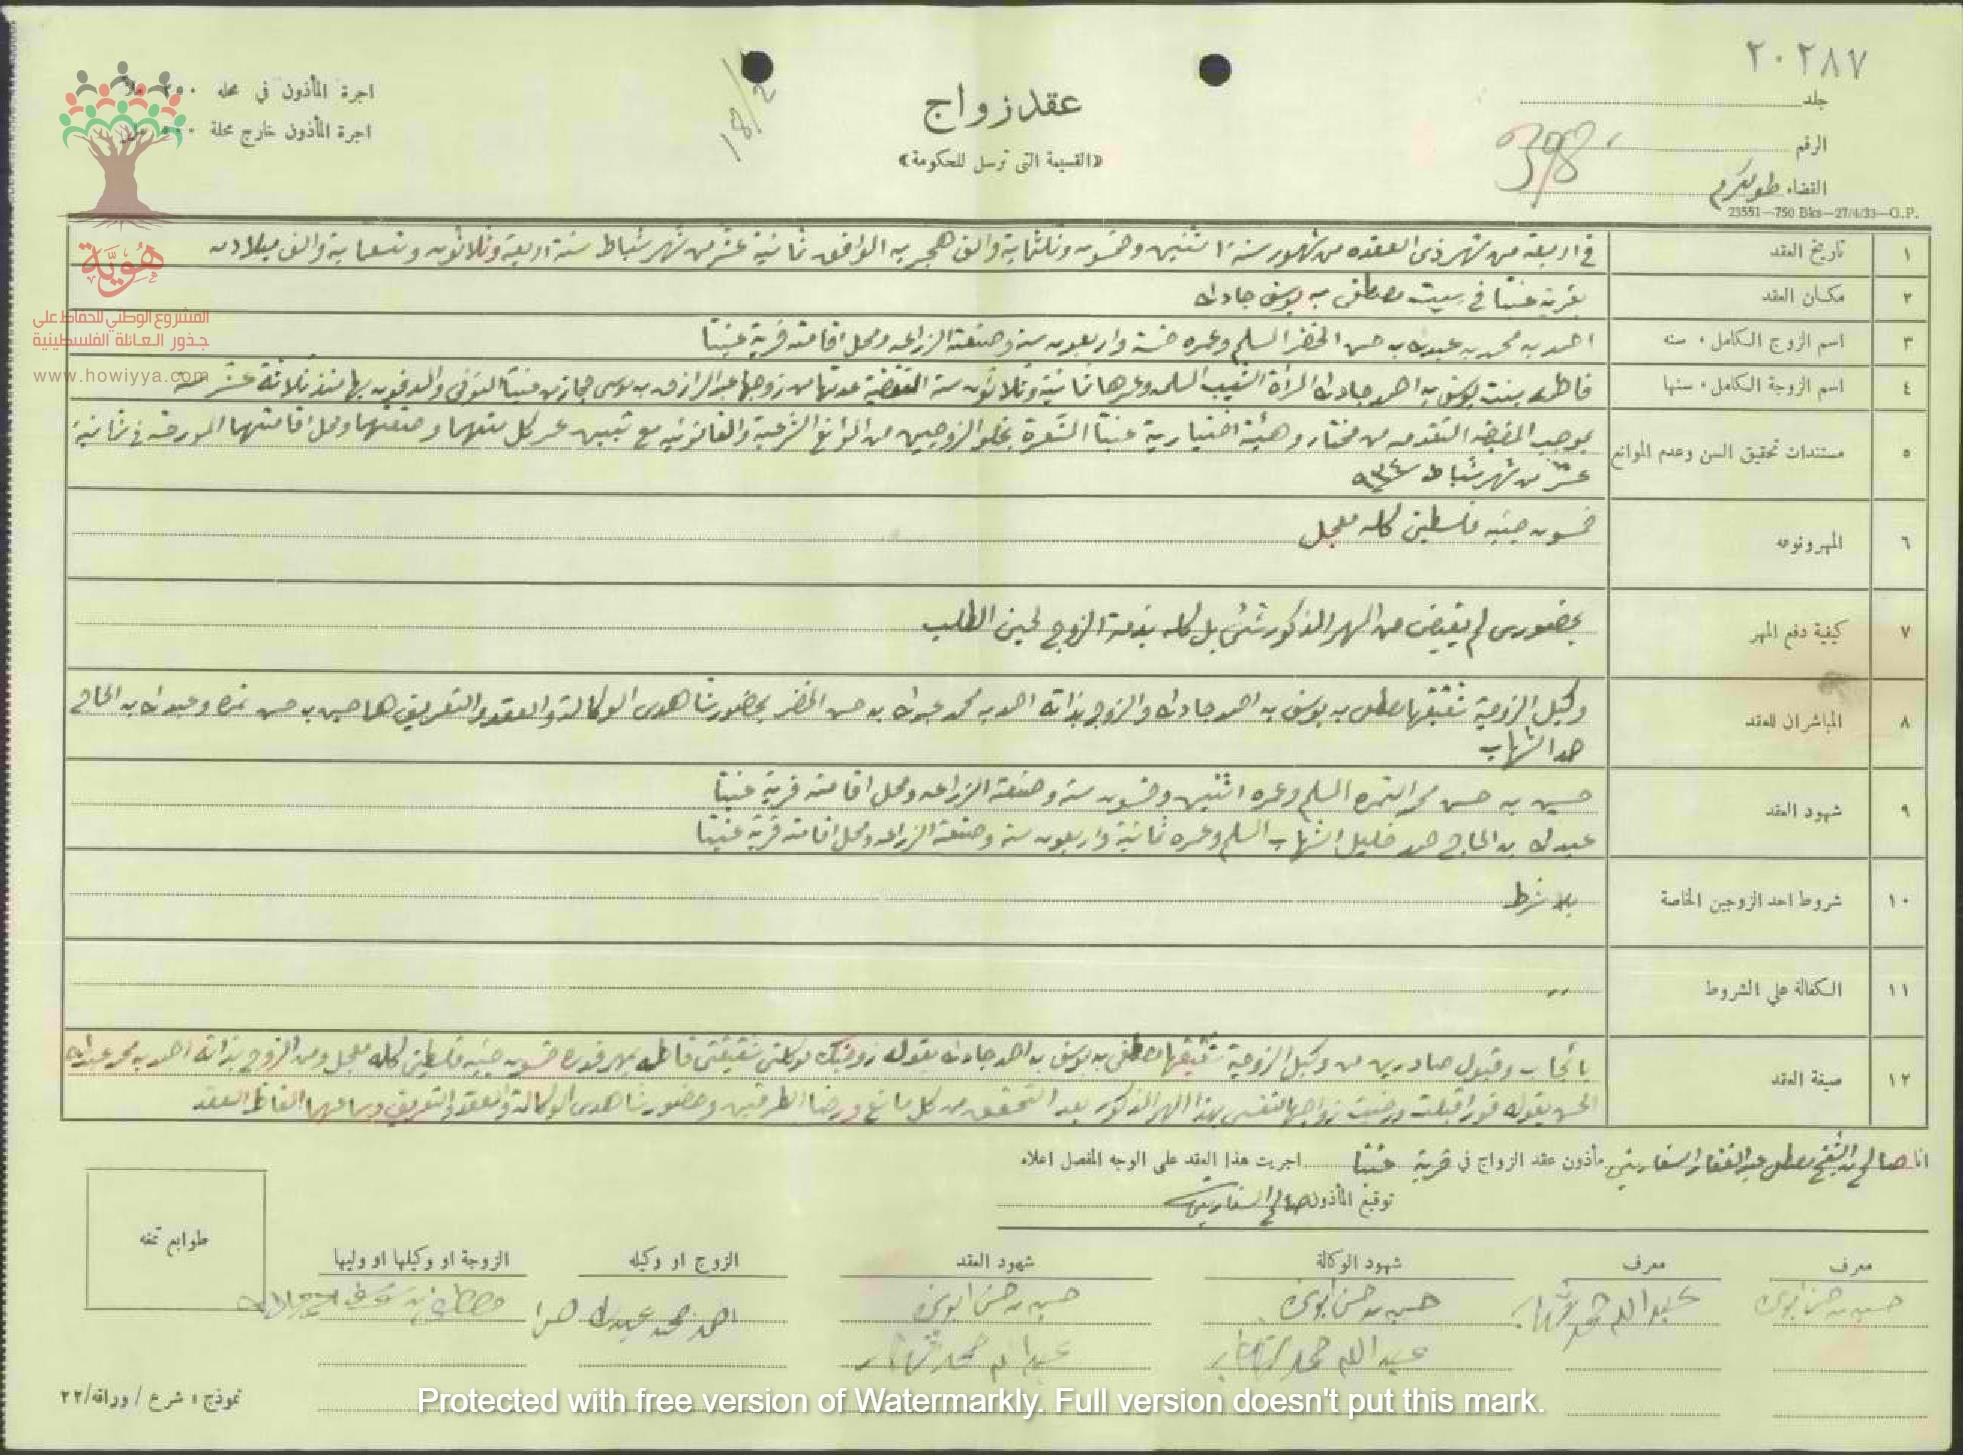 ٢٠٢٨٧
جلد
الرقم 398
القضاء طولكرم
23551—750 Bks—27/4/33—G.P.
عقد زواج
«القسيمة التي ترسل للحكومة»
18/2
اجرة المأذون في محله ٢٥٠ ملاً
اجرة المأذون خارج محلة ٥٠٠ مل
هُوِيَّة
المشروع الوطني للحفاظ على
جذور العائلة الفلسطينية
www.howiyya.com
١ تاريخ العقد في اربعة من شهر ذي العقده من شهور سنة اثنين وخمسون وثلثماية والف هجريه الموافق ثمانية عشر من شهر شباط سنة اربعة وثلاثون وتسعماية والف ميلاديه
٢ مكان العقد بقرية عنبتا في بيت مصطفى بن يوسف جادالله
٣ اسم الزوج الكامل ٠ سنه احمد بن محمد بن عبدالله بن حسن الخضر المسلم وعمره خمسة واربعون سنة وصنعته الزراعه ومحل اقامته قرية عنبتا
٤ اسم الزوجة الكامل ٠ سنها فاطمه بنت يوسف بن احمد جادالله المرأة الثيب المسلمه وعمرها ثمانية وثلاثون سنة المنقضية عدتها من زوجها عبد الرازق بن موسى حجاز من عنبتا المتوفى والمدفون بها منذ ثلاثة عشر سنة
٥ مستندات تحقيق السن وعدم الموانع بموجب المضبطه المتقدمه من مختار وهيئة اختيارية عنبتا المشعرة بخلو الزوجين من الموانع الشرعية والقانونيه مع تبيين عمر كل منهما وصنعتهما ومحل اقامتهما المورخه في ثمانية
عشر من شهر شباط ٩٣٤
٦ المهر ونوعه خمسون جنيه فلسطيني كله معجل
٧ كيفية دفع المهر بحضوري لم يقبض من المهر المذكور شئ بل كله بذمة الزوج لحين الطلب
٨ المباشران للعقد وكيل الزوجية شقيقها مصطفى بن يوسف بن احمد جادالله والزوج بذاته احمد بن محمد عبدالله بن حسن الخضر بحضور شاهدي الوكالة والعقد والتعريف هما حسين بن حسن نمره وعبدالله بن الحاج
حمد الشهاب
٩ شهود العقد حسين بن حسن محمد النمره المسلم وعمره اثنين وخمسون سنة وصنعته الزراعه ومحل اقامته قرية عنبتا
عبدالله بن الحاج حمد خليل الشهاب المسلم وعمره ثمانية واربعون سنة وصنعته الزراعه ومحل اقامته قرية عنبتا
١٠ شروط احد الزوجين الخاصة بلا شرط
١١ الكفالة على الشروط ״
١٢ صيغة العقد بايجاب وقبول صادرين من وكيل الزوجية شقيقها مصطفى بن يوسف بن احمد جادالله بقوله زوجتك موكلتي شقيقتي فاطمه بمهر قدره خمسون جنيه فلسطيني كله معجل ومن الزوج بذاته احمد بن محمد عبدالله
الحسن بقوله فورا قبلت ورضيت زواجها لنفسي بهذا المهر المذكور بعد التحقق من كل مانع ورضا الطرفين وحضور شاهدي الوكالة والعقد والتعريف وسماعهما الفاظ العقد
انا صالح بن الشيخ مصطفى عبد الغفار السفاريني مأذون عقد الزواج في قرية عنبتا اجريت هذا العقد على الوجه المفصل اعلاه
توقيع المأذون صالح السفاريني
معرف معرف شهود الوكالة شهود العقد الزوج او وكيله الزوجة او وكيلها او وليها
طوابع تمغه
حسين حسن عبدالله حمد شهاب حسين حسن حسين حسن احمد محمد عبدالله مصطفى
عبدالله حمد عبدالله حمد شهاب
نموذج ؛ شرع / وراقه/٢٢
Protected with free version of Watermarkly. Full version doesn't put this mark.